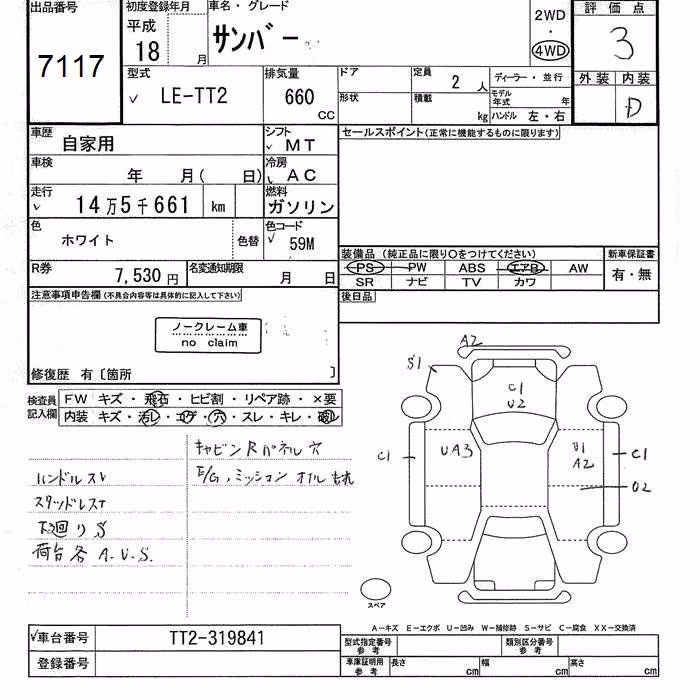 出品番号 初度登録年月 車名・グレード 2WD 評価点
平成 ・
7117 18 月 サンバー 4WD 3
型式 排気量 ドア 定員 2 人 ディーラー・並行 外装 内装
LE-TT2 660 CC 形状 積載 kg モデル年式 年 D
ハンドル 左・右
車歴 自家用 シフト MT セールスポイント(正常に機能するものに限ります)
車検 年 月( 日) 冷房 AC
走行 14万5千661 km 燃料 ガソリン
色 ホワイト 色替 色コード 59M
装備品(純正品に限り○をつけてください) 新車保証書
R券 7,530円 名変通知期限 月 日 PS PW ABS エアB AW 有・無
SR ナビ TV カワ
注意事項申告欄(不具合内容等は具体的に記入して下さい) 後日品
ノークレーム車
no claim
修復歴 有〔箇所 〕
検査員記入欄 FW キズ・飛石・ヒビ割・リペア跡・×要
内装 キズ・汚レ・コゲ・穴・スレ・キレ・破レ
キャビンRパネル穴
ハンドルスレ E/G,ミッションオイルもれ
スタッドレス
下廻りS
荷台各A.U.S.
A2
S1
C1
U2
C1 UA3 U1 A2 C1
U2
スペア
A－キズ E－エクボ U－凹み W－補修跡 S－サビ C－腐食 XX－交換済
車台番号 TT2-319841 型式指定番号 参考 類別区分番号 参考
登録番号 車庫証明用 参考 長さ cm 幅 cm 高さ cm